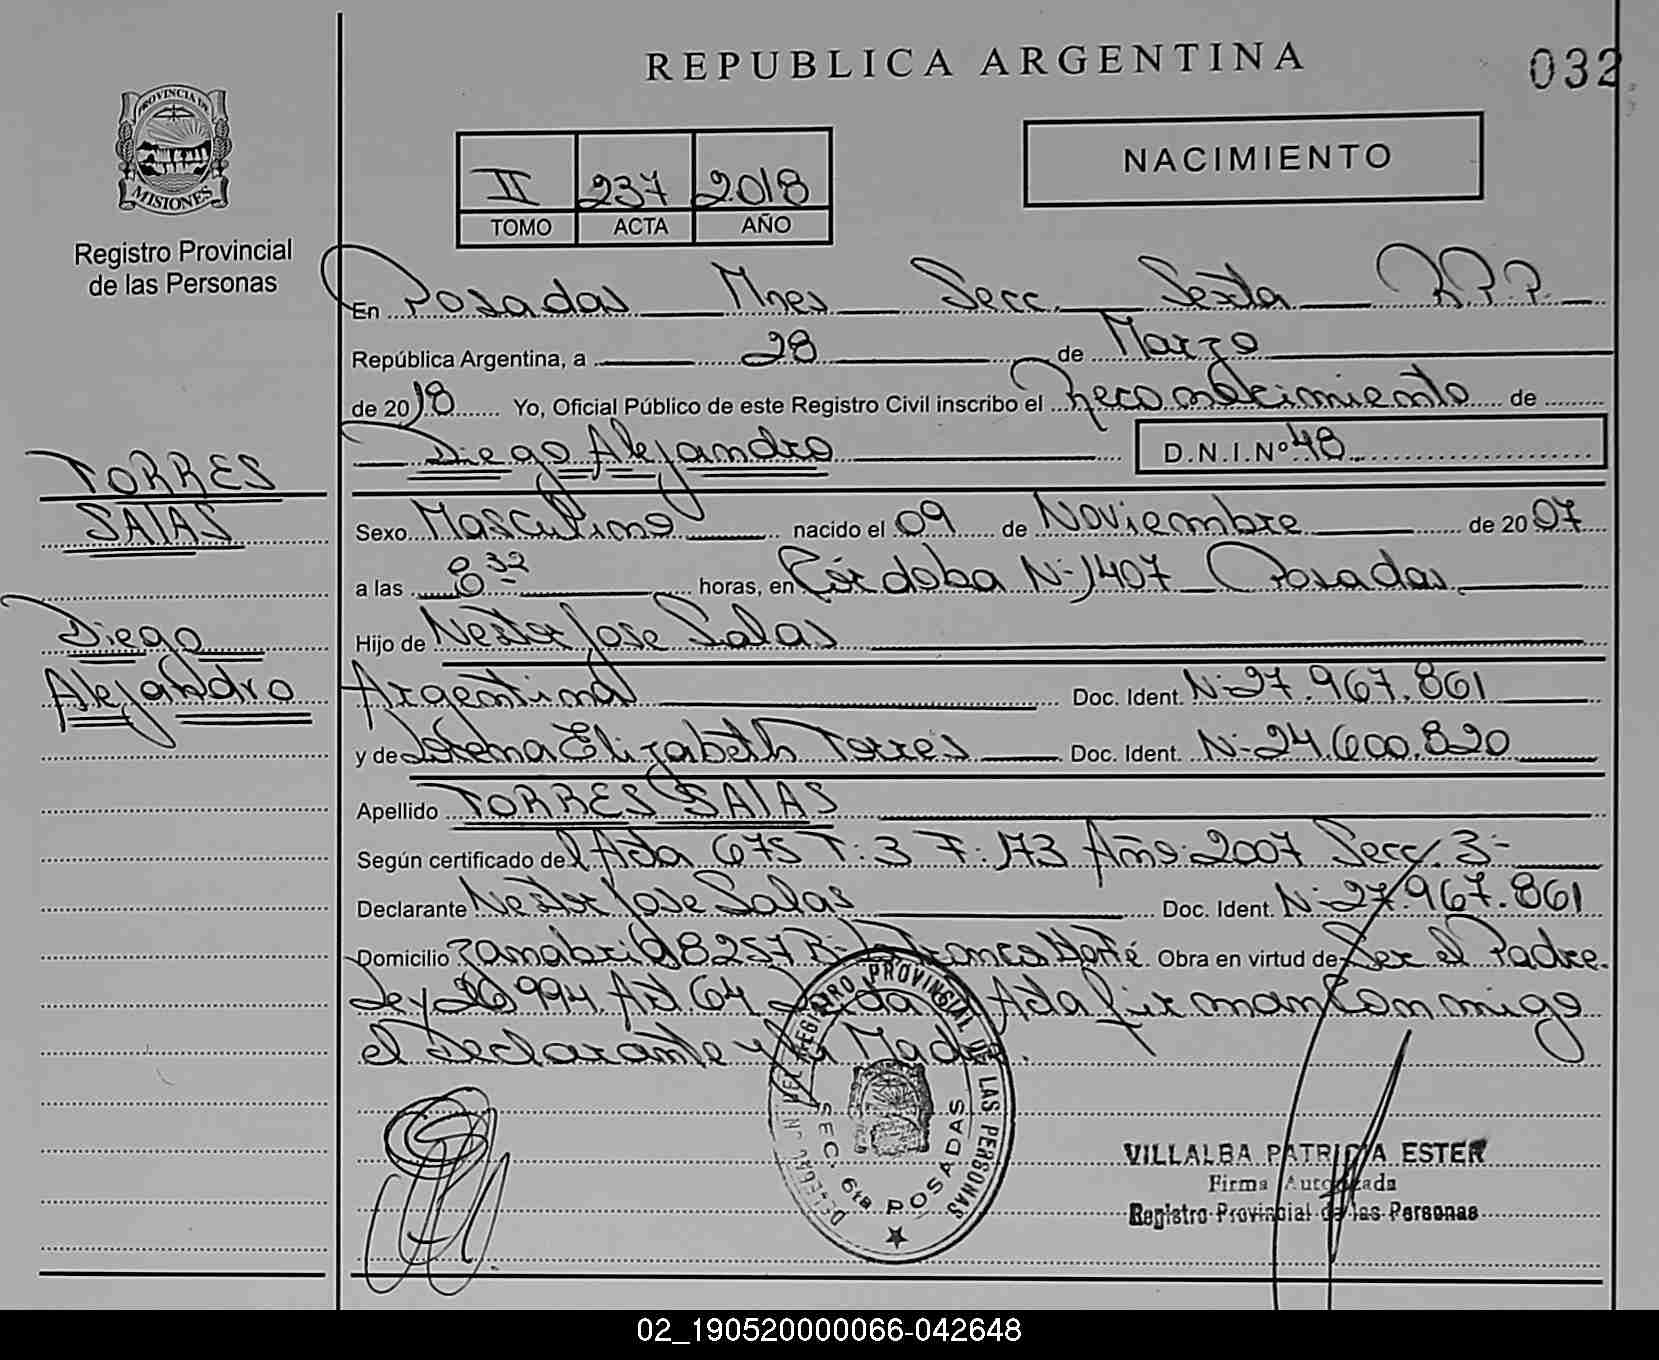 REPUBLICA ARGENTINA
032
PROVINCIA DE
MISIONES
Registro Provincial
de las Personas
II 237 2018
TOMO ACTA AÑO
NACIMIENTO
En Posadas Mnes Secc. Sexta R.P.P.
República Argentina, a 28 de Marzo
de 2018 Yo, Oficial Público de este Registro Civil inscribo el Reconocimiento de
Diego Alejandro D.N.I.Nº 48
TORRES
SALAS
Diego
Alejandro
Sexo Masculino nacido el 09 de Noviembre de 2007
a las 8 32 horas, en Córdoba Nº 1407 Posadas
Hijo de Nestor Jose Salas
Argentina Doc. Ident. Nº 27.967.861
y de Lorena Elizabeth Torres Doc. Ident. Nº 24.600.820
Apellido TORRES SALAS
Según certificado del Acta 675 T: 3 F: 173 Año: 2007 Secc. 3º
Declarante Nestor Jose Salas Doc. Ident. Nº 27.967.861
Domicilio 8257 Bº Obra en virtud de Ser el Padre.
Ley 26.994. Art. 64 Acta firman conmigo
el Declarante y la Madre.
DELEGAC. Nº DEL REGISTRO PROVINCIAL DE LAS PERSONAS
SEC. 6ta POSADAS
VILLALBA PATRICIA ESTER
Firma Autorizada
Registro Provincial de las Personas
02_190520000066-042648